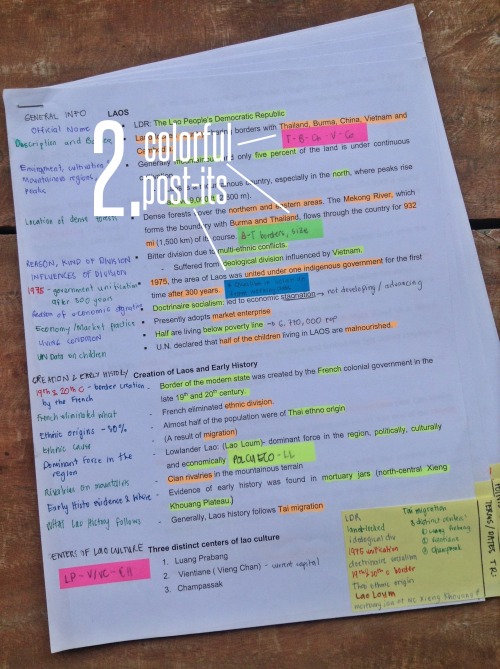 2. colorful
post its
GENERAL INFO
LAOS
Official Name
LDR: The Lao People's Democratic Republic
Thailand, Burma, China, Vietnam and
T-B-Ch-V-Ca
Generally
only five percent of the land is under continuous
country, especially in the north, where peaks rise
Mountainous regions,
Location of dense forests
Dense forests cover the northern and eastern areas. The Mekong River, which
forms the boundary with Burma and Thailand, flows through the country for 932
mi (1,500 km) of its course.
B-T borders, side
REASON, KIND OF DIVISION
INFLUENCES OF DIVISION
Bitter division due to multi-ethnic conflicts.
- Suffered from ideological division influenced by Vietnam.
1975 - government unification
after 300 years
1975, the area of Laos was united under one indigenous government for the first
time after 300 years.
Doctrinaire socialism: led to economic stagnation → not developing / advancing
Economy/Market practice
Presently adopts market enterprise
Living condition
Half are living below poverty line → 6,770,000 pop
UN Data on children
U.N. declared that half of the children living in LAOS are malnourished.
CREATION & EARLY HISTORY
Creation of Laos and Early History
19th & 20th C - border creation
by the French
Border of the modern state was created by the French colonial government in the
late 19th and 20th century.
French eliminated what
French eliminated ethnic division.
Ethnic origins - 50%
Almost half of the population were of Thai ethno origin
Ethnic cause
(A result of migration)
Dominant force in the
region
Lowlander Lao: (Lao Loum)- dominant force in the region, politically, culturally
and economically
POCUECO - LL
Rivalries on mountains
Clan rivalries in the mountainous terrain
Early Histo evidence & where
Evidence of early history was found in mortuary jars (north-central Xieng
Khouang Plateau)
What Lao History follows
Generally, Laos history follows Tai migration
CENTERS OF LAO CULTURE
Three distinct centers of lao culture
LP - V/VC - CH
1. Luang Prabang
2. Vientiane ( Vieng Chan) - current capital
3. Champassak
LDR
landlocked
ideological div
1975 unification
doctrinaire socialism
19th & 20th c border
Thai ethnic origin
Lao Loum
Tai migration
3 distinct centers
① Luang Prabang
② Vientiane
③ Champasak
TERMS / DATES